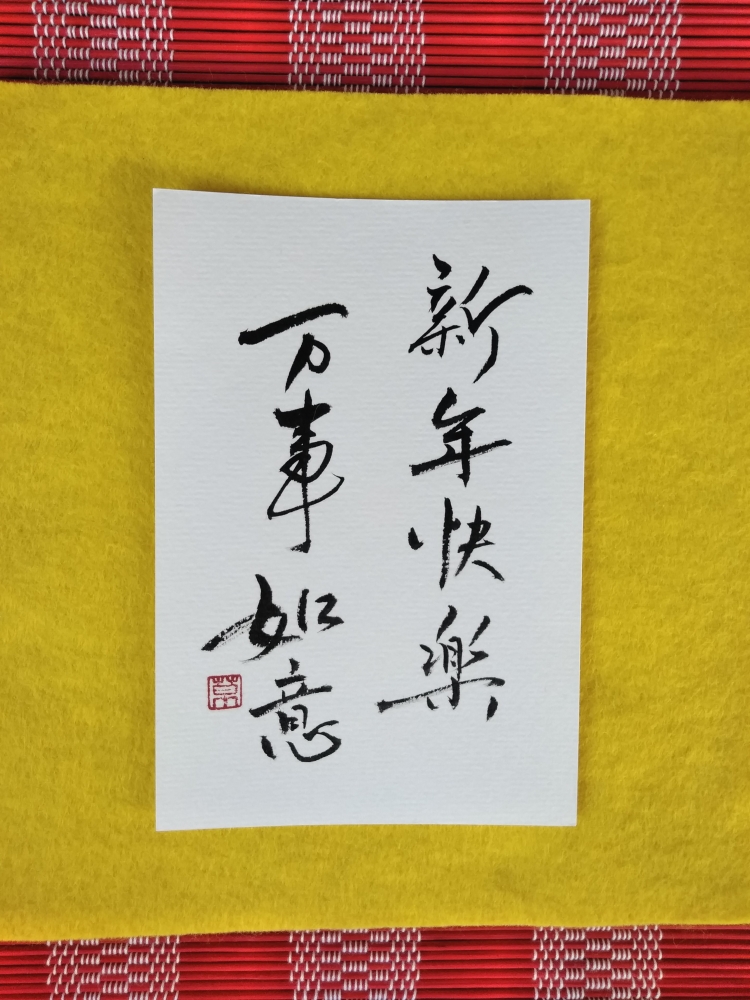 新年快樂
万事如意